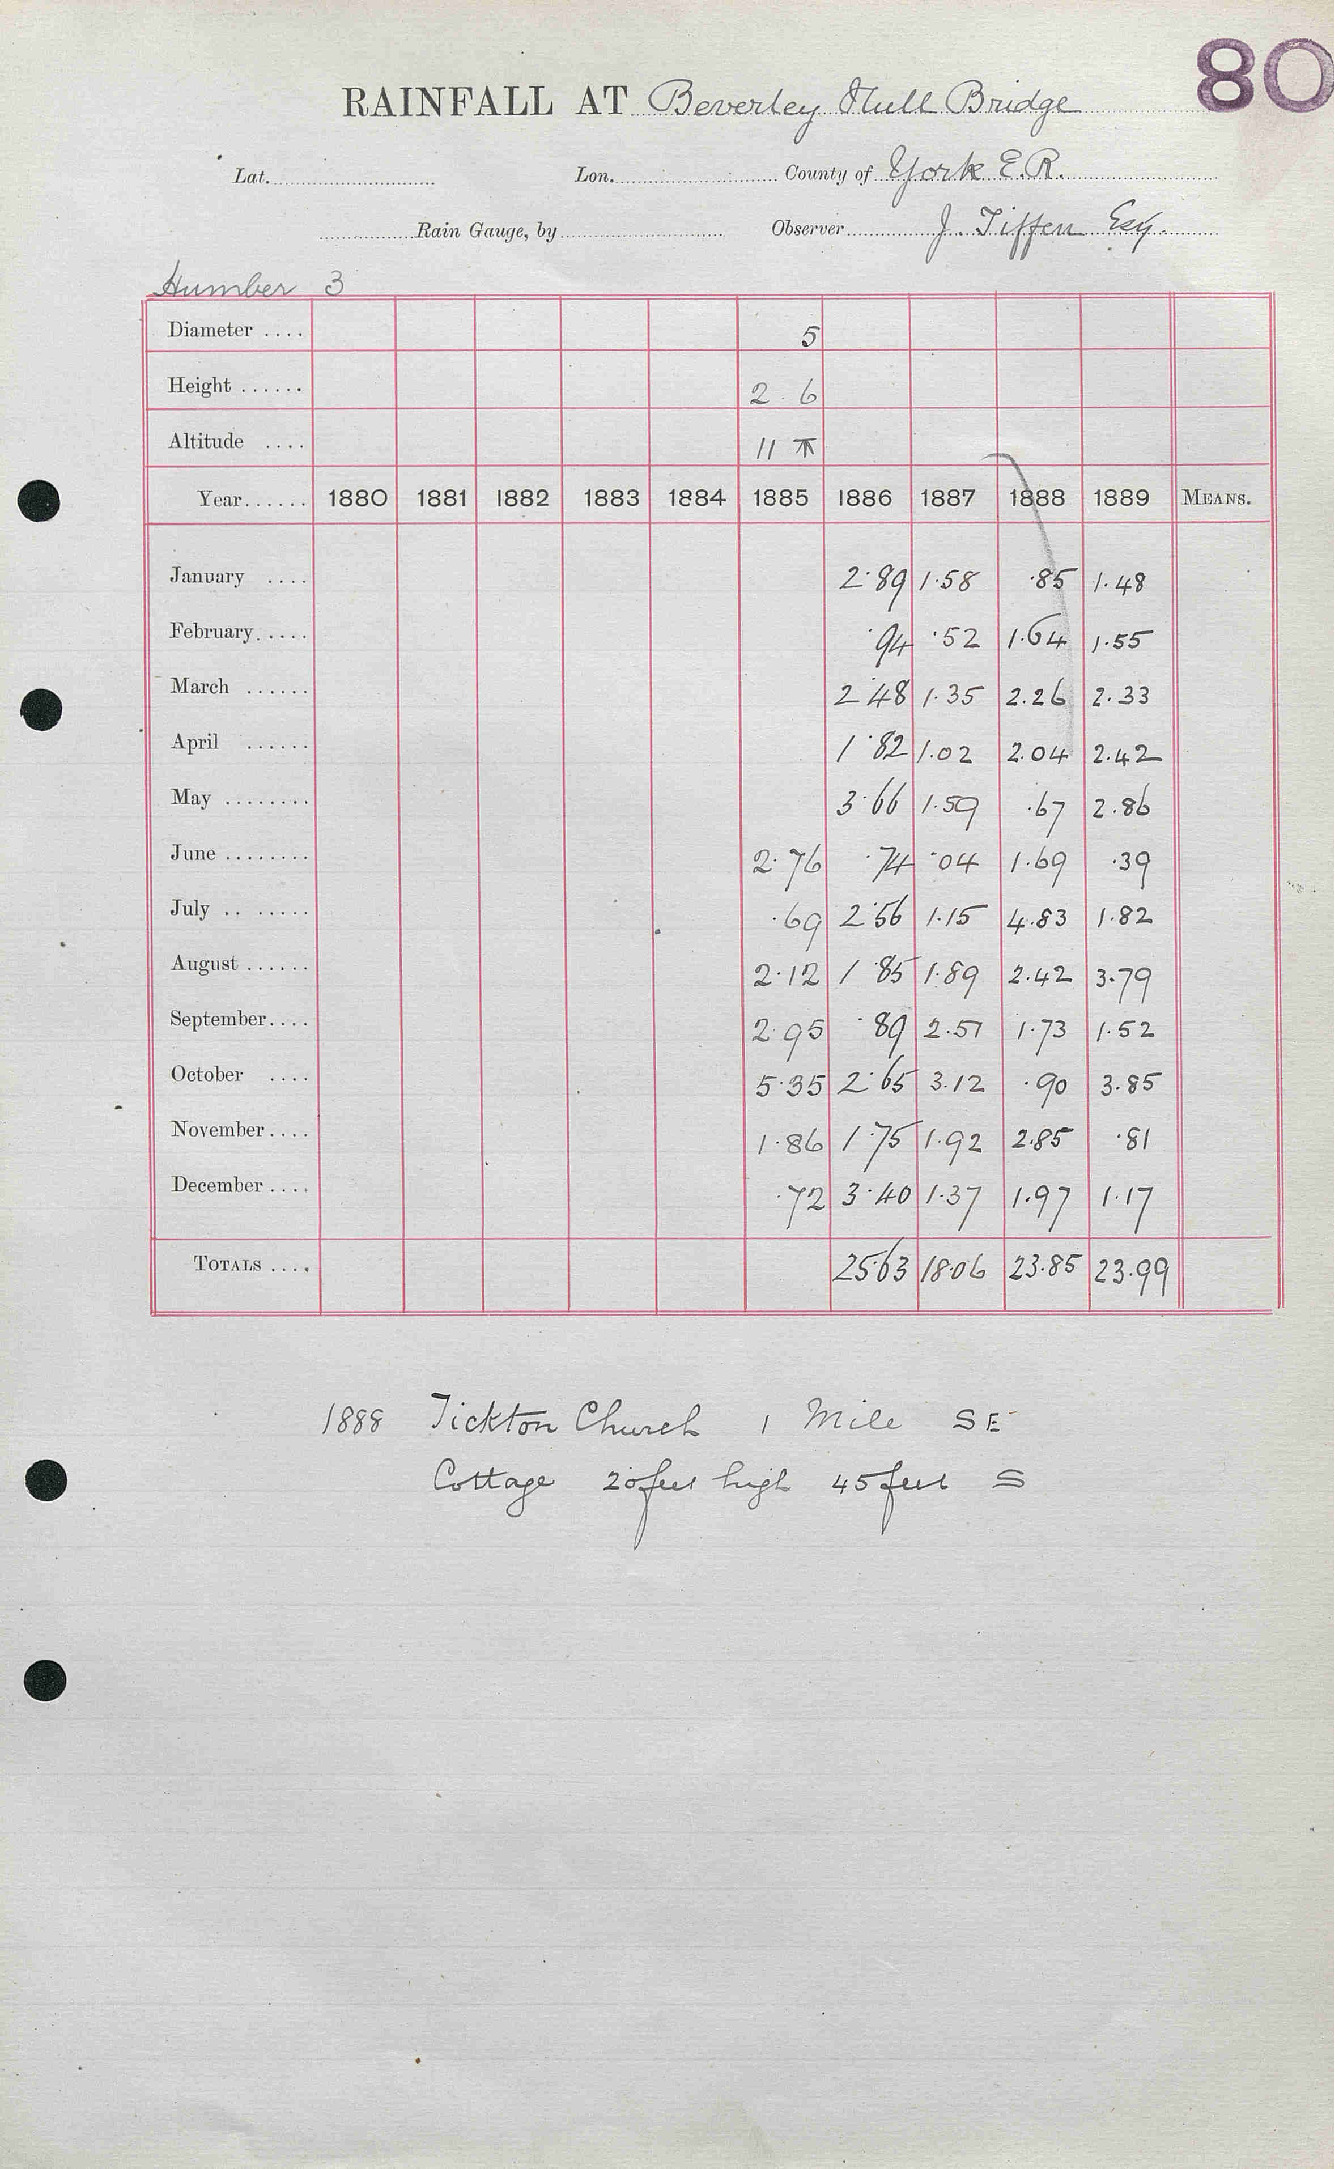 80
RAINFALL AT Beverley Hull Bridge
Lat. Lon. County of York E.R.
Rain Gauge, by Observer J. Tiffen Esq.
Humber 3
Diameter .... 5
Height ...... 2 6
Altitude .... 11
Year...... 1880 1881 1882 1883 1884 1885 1886 1887 1888 1889 MEANS.
January .... 2.89 1.58 .85 1.48
February..... .94 .52 1.64 1.55
March ...... 2.48 1.35 2.26 2.33
April ...... 1.82 1.02 2.04 2.42
May ........ 3.66 1.59 .67 2.86
June ........ 2.76 .74 .04 1.69 .39
July .. ..... .69 2.56 1.15 4.83 1.82
August ...... 2.12 1.85 1.89 2.42 3.79
September.... 2.95 .89 2.51 1.73 1.52
October .... 5.35 2.65 3.12 .90 3.85
November.... 1.86 1.75 1.92 2.85 .81
December.... .72 3.40 1.37 1.97 1.17
TOTALS .... 25.63 18.06 23.85 23.99
1888 Tickton Church 1 Mile SE
Cottage 20 feet high 45 feet S